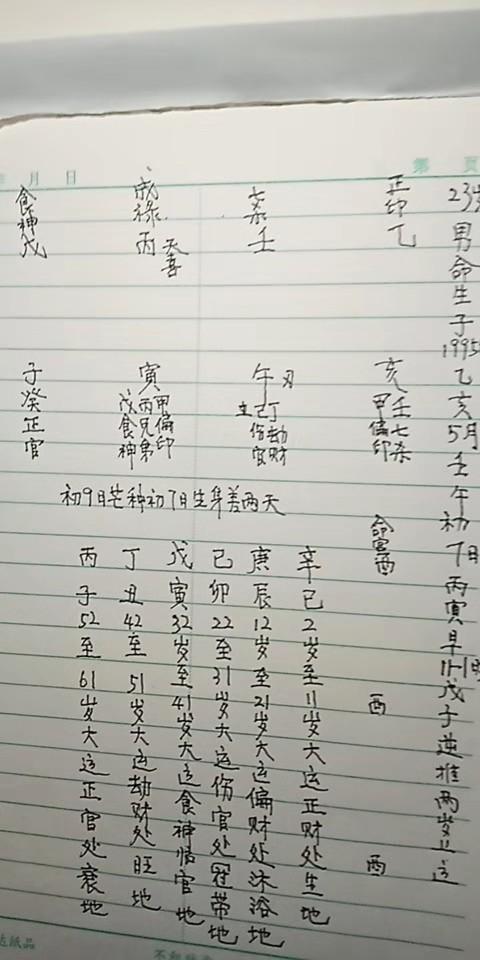 第 页
年 月 日
23岁男命生于1995乙亥5月壬午初7日丙寅早11-1时戊子逆推两岁上运
正印乙
亥
壬七杀
甲偏印
命宫酉
酉
酉
杀壬
午刃
丁劫财
己伤官
禄丙
天喜
寅
甲偏印
丙兄弟
戊食神
食神戊
子癸正官
初9日芒种初7日生 差两天
辛巳2岁至11岁大运正财处生地
庚辰12岁至21岁大运偏财处沐浴地
己卯22至31岁大运伤官处冠带地
戊寅32岁至41岁大运食神临官地
丁丑42至51岁大运劫财处旺地
丙子52至61岁大运正官处衰地
达纸品